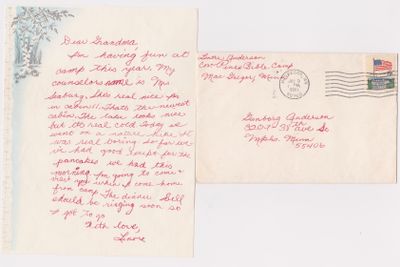 Dear Grandma,
I'm having fun at
camp this year. My
counselors name is Ms.
Seaburg. She's real nice I'm
in cabin 11. That's the newest
cabin. The lake looks nice
but it's real cold. Today we
went on a nature hike. It
was real boring. So far we
've had good food for the
pancakes we had this
morning. I'm going to come
visit you when I come home
from camp. The dinner bell
should be ringing soon so
I got to go
With love,
Lenore
Lenore Anderson
Cov. Pines Bible Camp
Mac Gregor, Minn
Gunborg Anderson
3209 38th ave So
Mpls. Minn
55406